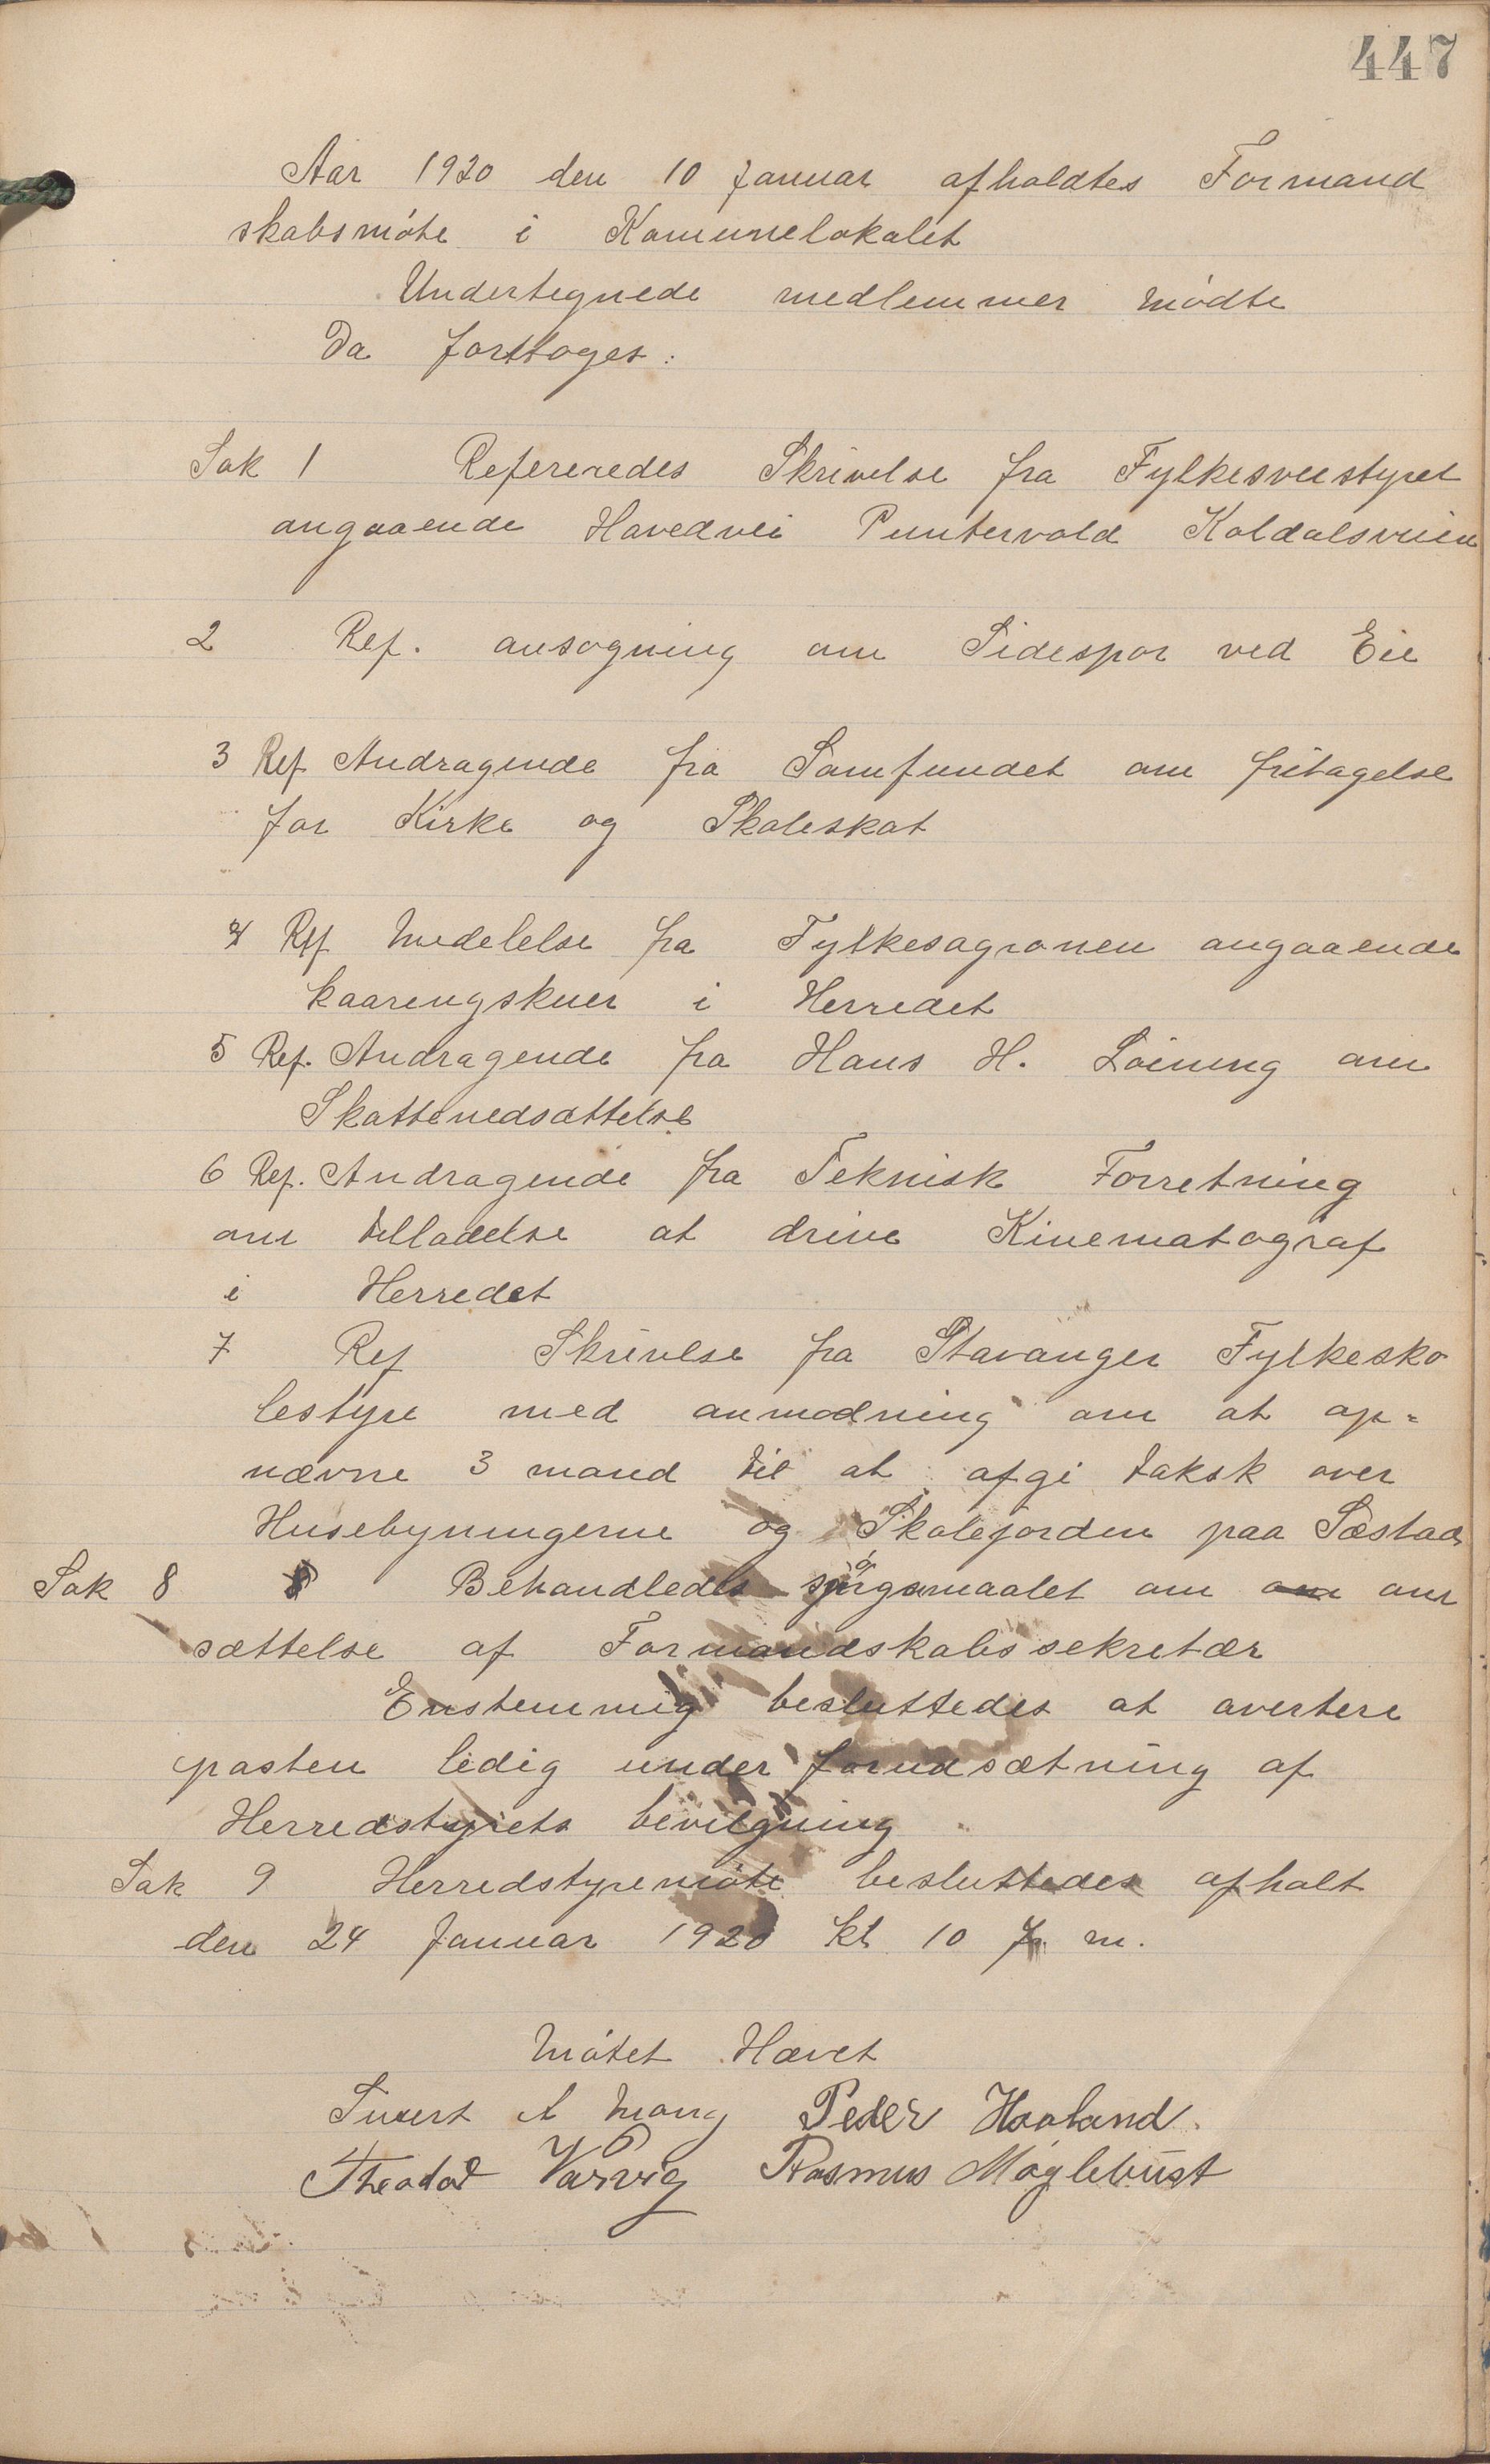 447
Aar 1920 den 10 Januar afholdtes Formand
skabsmöte i Komunelokalet
Undertegnede medlemmer mödte
Da forttoges:
Sak 1 Refereredes Skrivelse fra Fylkesveistyret
angaaende Hovedvei Puntervold Koldalsveien
2 Ref. ansogning om Sidespor ved Eie
3 Ref Andragende fra Samfundet om fritagelse
for Kirke og Skoleskat
4 Ref Medelelse fra Fylkesagronen angaaende
kaaringskuer i Herredet
5 Ref. Andragende fra Hans H. Löining om
Skattenedsættelse
6 Ref. Andragende fra Teknisk Forretning
om tilladelse at drive Kinematograf
i Herredet
7 Ref Skrivelse fra Stavanger Fylkesko
lestyre med anmodning om at op=
nævne 3 mand til at afgi taksk over
Husebyningerne og Skolejorden paa Sæstad
Sak 8 Behandledes spörgsmaalet om om an
sættelse af Formandskabssekretær
Enstemmig besluttedes at avertere
posten ledig under forudsætning af
Herredstyrets bevilgning
Sak 9 Herredstyremöte besluttedes afholt
den 24 Januar 1920 kl 10 f. m.
Mötet Hævet
Sivert A Mong Peder Haaland.
Theodor Varvig Rasmus Møglebust